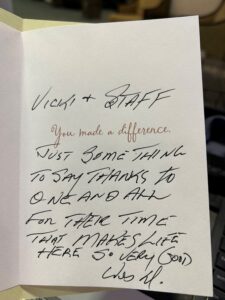 VICKI + STAFF
You made a difference.
JUST SOME THING
TO SAY THANKS TO
ONE AND ALL
FOR THEIR TIME
THAT MAKES LIFE
HERE SO VERY GOOD